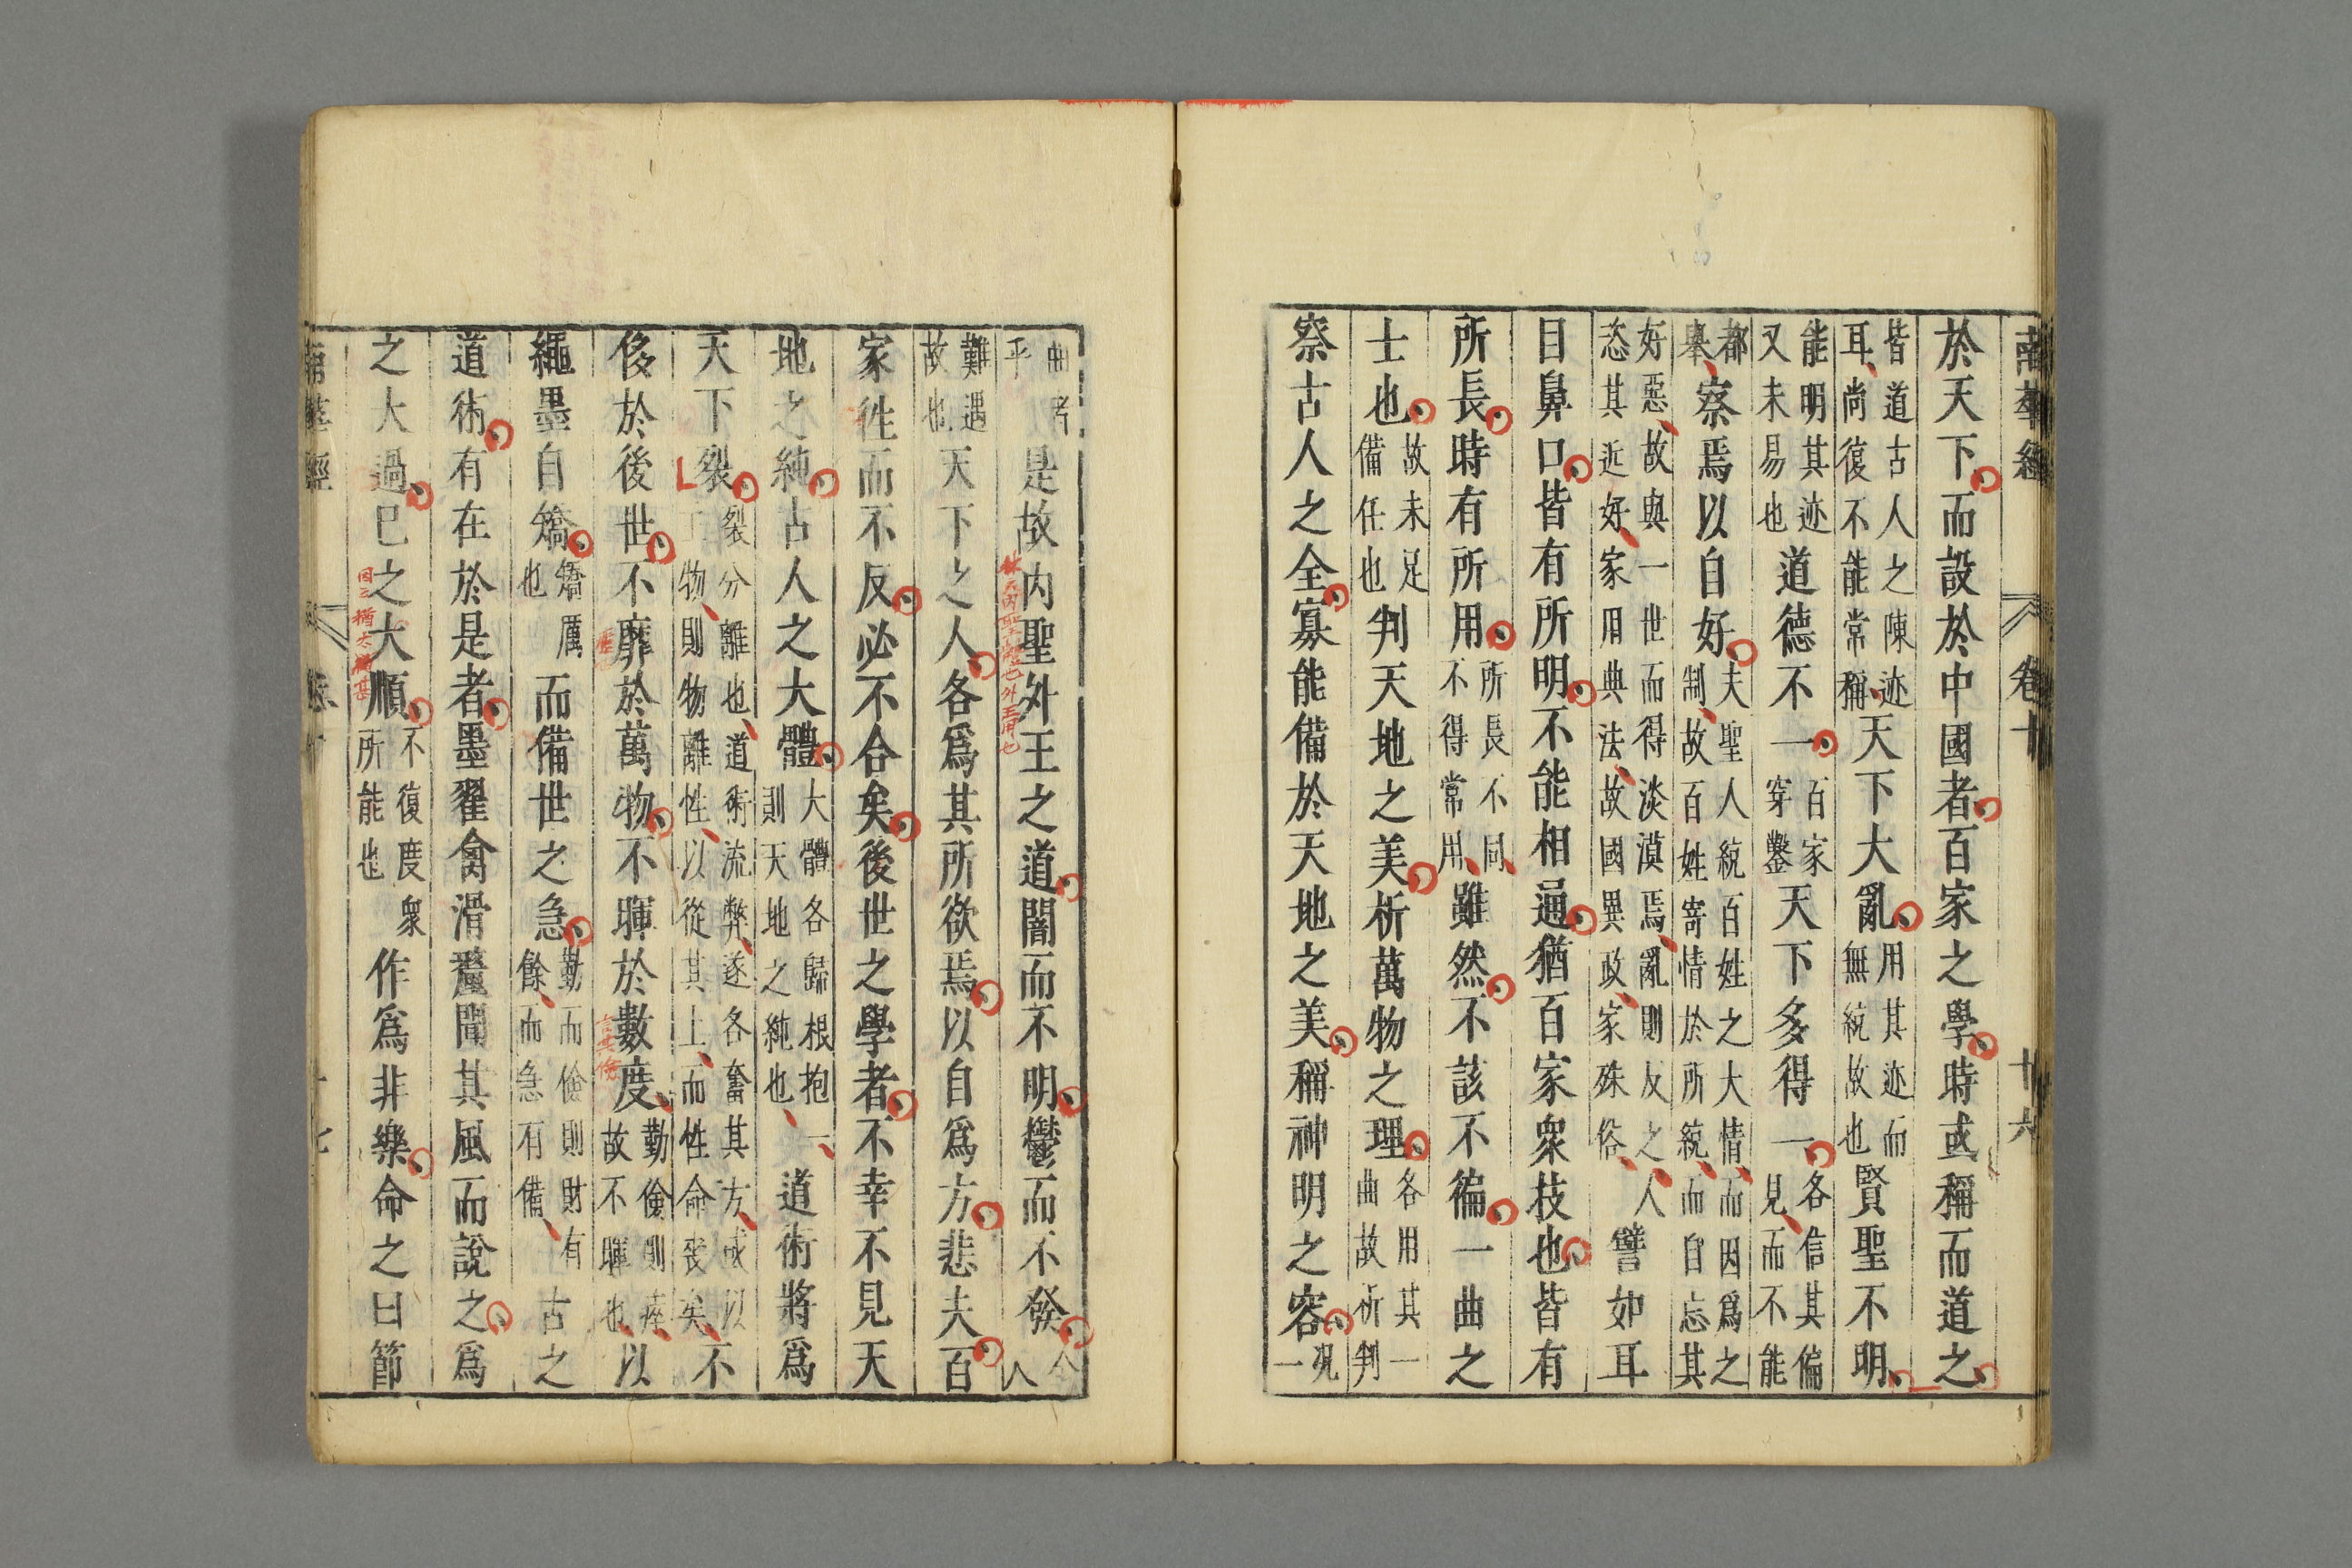 南華經 卷十 十六
於天下而設於中國者百家之學時或稱而道之
皆道古人之陳迹
耳尚復不能常稱
天下大亂
用其迹而
無統故也
賢聖不明
能明其迹
又未易也
道德不一
百家
穿鑿
天下多得一
各信其偏
見而不能
都
舉
察焉以自好
夫聖人統百姓之大情而因爲之
制故百姓寄情於所統而自忘其
好惡故與一世而得淡漠焉亂則反之人
恣其近好家用典法故國異政家殊俗
譬如耳
目鼻口皆有所明不能相通猶百家衆技也皆有
所長時有所用
所長不同
不得常用
雖然不該不徧一曲之
士也
故未足
備任也
判天地之美析萬物之理
各用其一
曲故析判
察古人之全寡能備於天地之美稱神明之容
况一
曲者
乎
是故内聖外王之道闇而不明鬱而不發
全人
難遇
故也
天下之人各爲其所欲焉以自爲方悲夫百
家徃而不反必不合矣後世之學者不幸不見天
地之純古人之大體
大體各歸根抱一
則天地之純也
道術將爲
天下裂
裂分離也道術流弊遂各奮其方或以
物則物離性以從其上而性命喪矣
不
侈於後世不靡於萬物不暉於數度
勤儉則瘁
故不暉也
以
繩墨自矯
矯厲
也
而備世之急
勤而儉則財有
餘而急有備
古之
道術有在於是者墨翟禽滑釐聞其風而說之爲
之大過已之大順
不復度衆
所能也
作爲非樂命之曰節
南華經